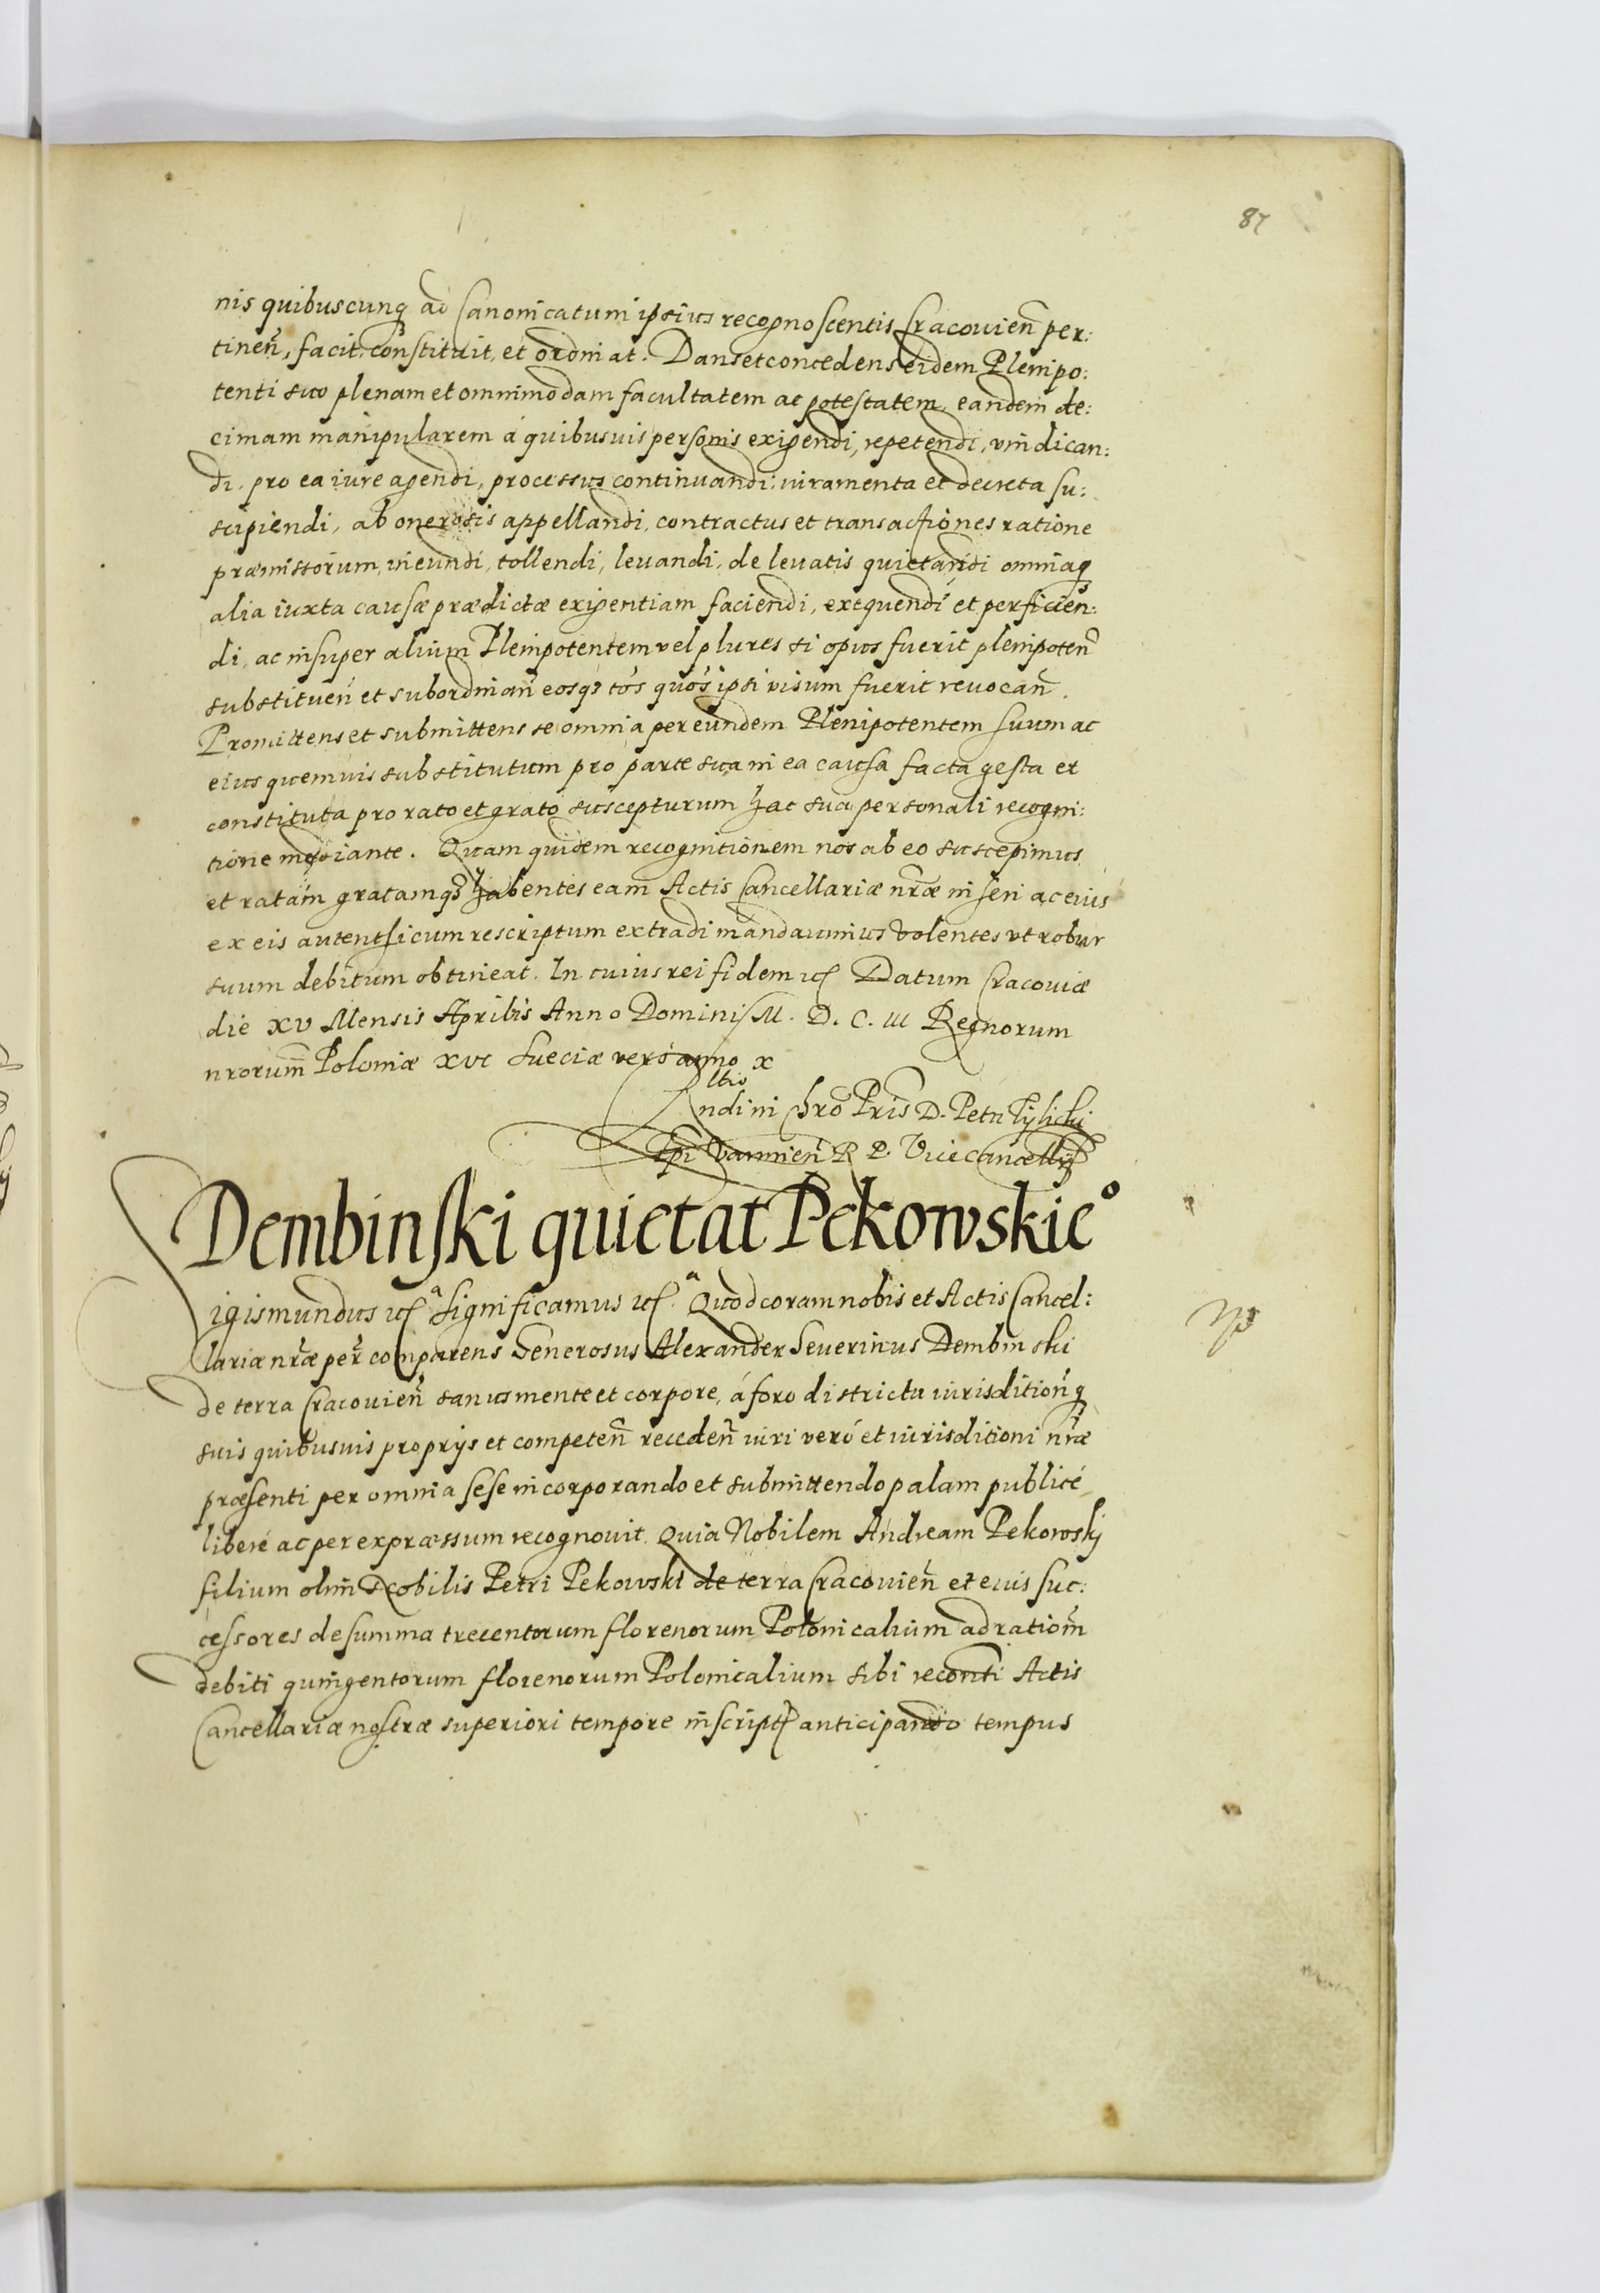 87
nis quibuscunq ad Canonicatum ipsius recognoscentis Cracovien̄ per:
tinen̄, facit, constituit, et ordinat. Dans et concedens eidem Plenipo:
tenti suo plenam et omnimodam facultatem ac potestatem, eandem de:
cimam manipularem á quibusuis personis exigendi, repetendi, vindican:
di, pro ea iure agendi, processus continuandi, iuramenta et decreta su:
scipiendi, ab onerosis appellandi, contractus et transactiones ratione
præmissorum, ineundi, tollendi, leuandi, de leuatis quietandi omniaq
alia iuxta causæ prædictæ exigentiam faciendi, exequendi et perficien:
di, ac insuper alium Plenipotentem vel plures si opus fuerit plenipoten̄
substituen̄ et subordinan̄ eosq3 tós quós ipsi visum fuerit reuocan̄.
Promittens et submittens se omnia per eundem Plenipotentem suum ac
eius quemuis substitutum pro parte sua in ea causa facta gesta et
constituta pro rato et grato suscepturum hac sua personali recogni:
tione mediante. Quam quidem recognitionem nos ab eo suscepimus
et ratam gratamq3 habentes eam Actis Cancellariæ nr̄æ inseri ac eius
ex eis autenthicum rescriptum extradi mandauimus volentes vt robur
suum debitum obtineat. In cuius rei fidem etc Datum Cracouiæ
die XV Mensis Aprilis Anno Domini M. D. C. III Regnorum
nrorum̄ Poloniæ XVI Sueciæ veró anno X
ltio
ndi in Chro Pris D. Petri Tylicki
Epi Varmien̄ R P. Vicecancellrj
Dembinski quietat Pekowskieº
igismundus etc ª Significamus etc ª Quod coram nobis et Actis Cancel:
lariæ nr̄æ per̄ comparens Generosus Alexander Seuerinus Dembinski
de terra Cracouien̄ sanus mente et corpore, á foro districtu iurisdition̄q
suis quibusuis proprijs et competen̄ receden̄ iuri veró et iurisditioni nr̄æ
præsenti per omnia sese incorporando et submittendo palam publicé
liberé ac per expræssum recognouit. Quia Nobilem Andream Pekowskj
filium olim Nobilis Petri Pekowski de terra Cracouien̄ et eius suc:
cessores de summa trecentorum florenorum Polonicalium ad ration̄m
debiti quingentorum florenorum Polonicalium sibi reconti Actis
Cancellariæ nostræ superiori tempore inscriptj anticipando tempus